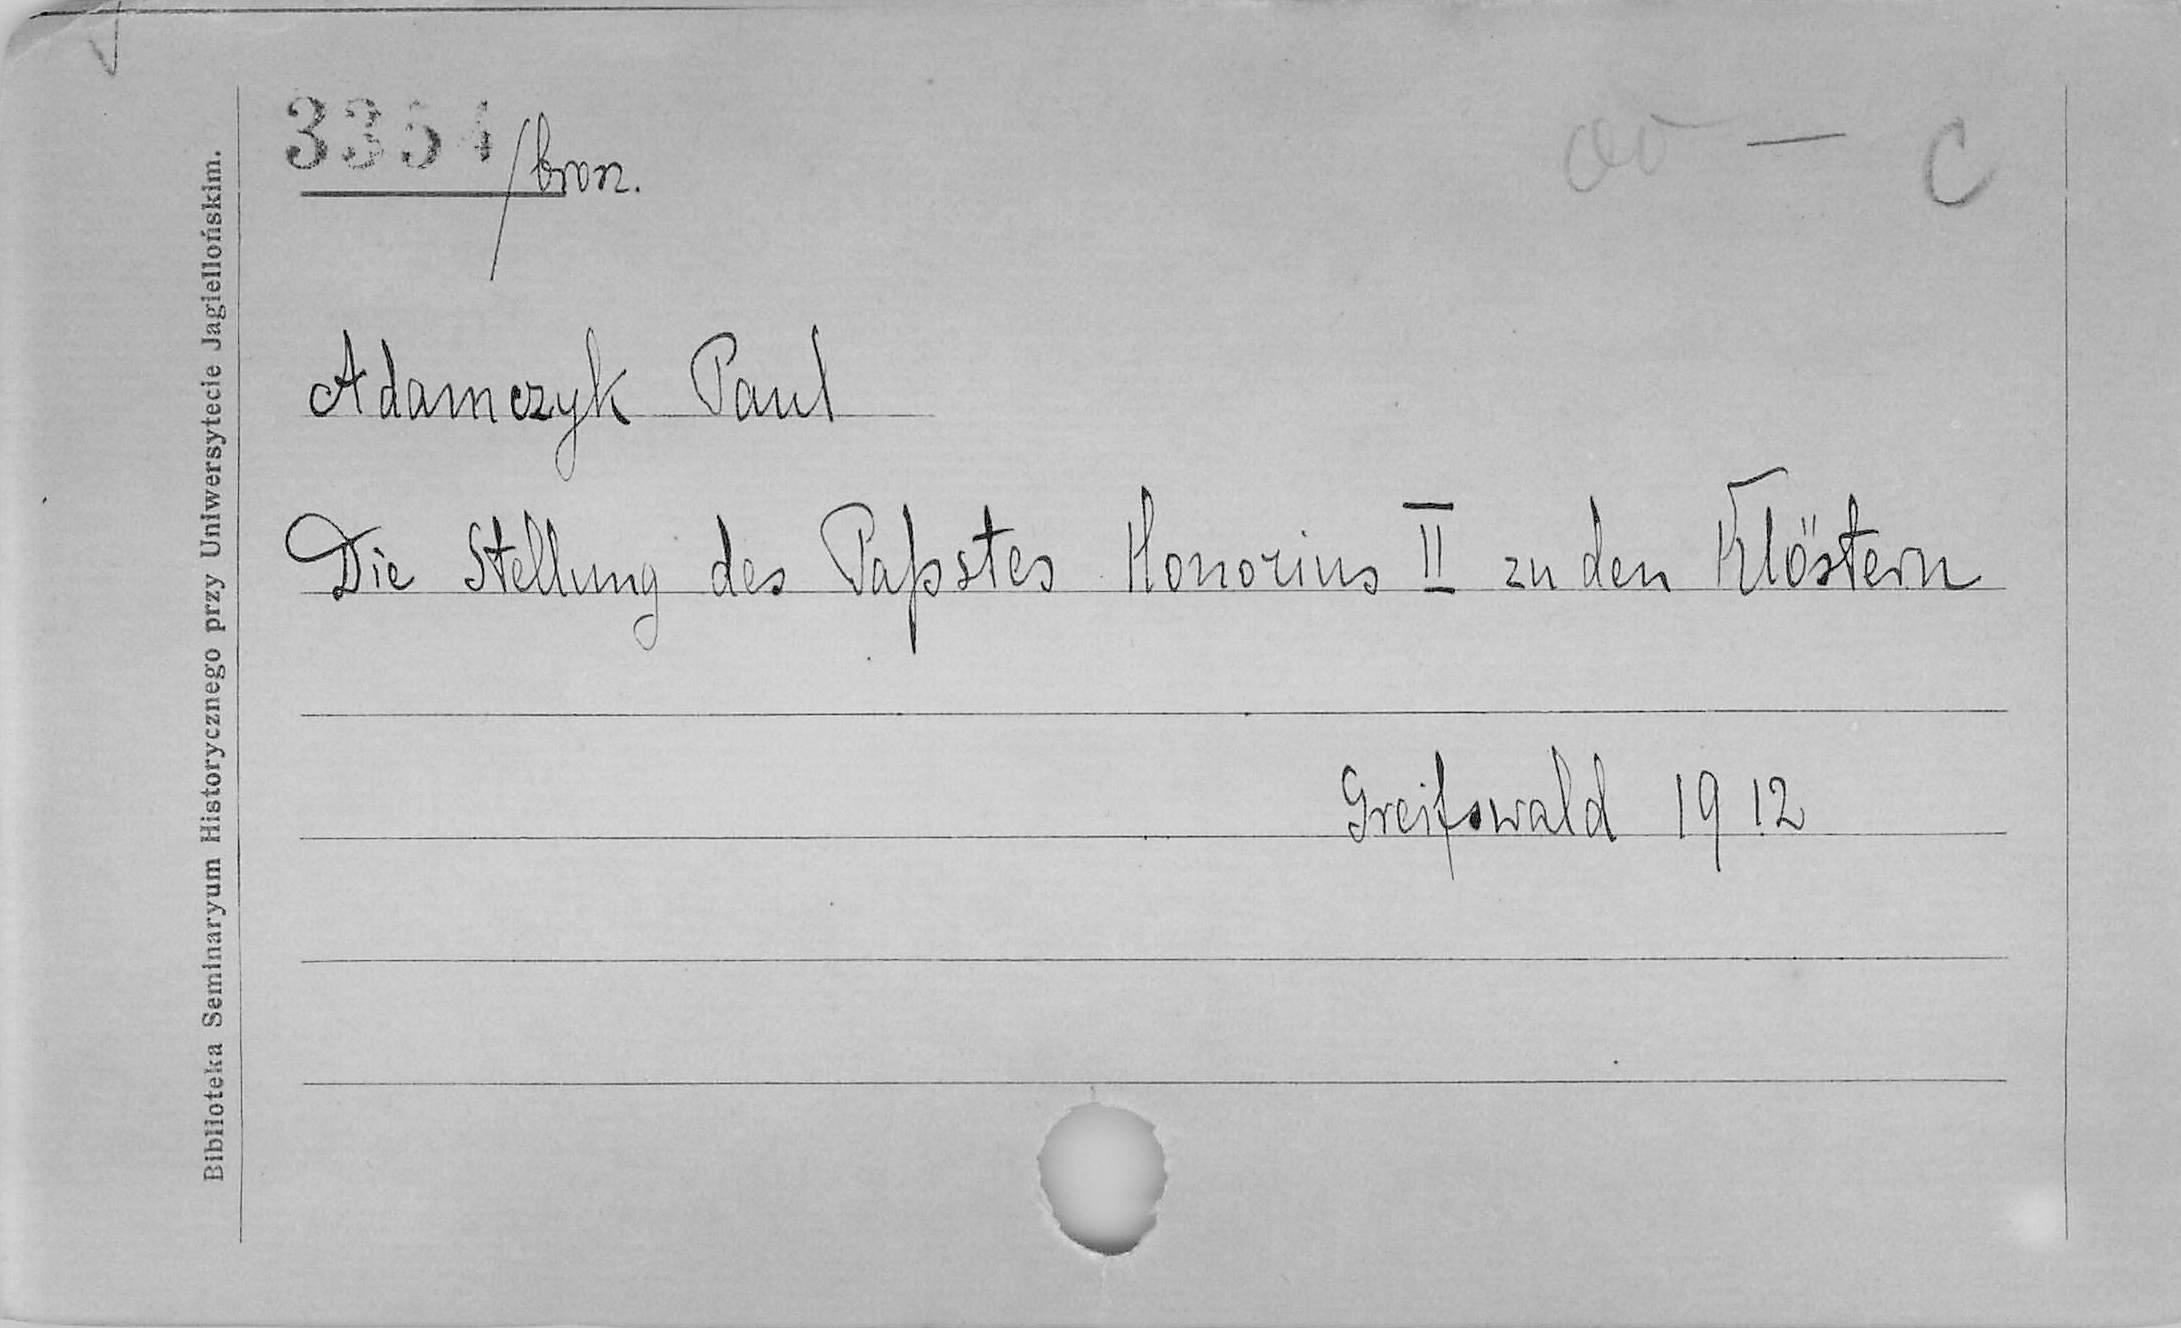 3354/bron.
C
Adamczyk Paul
Die Stellung des Papstes Honorius II zu den Klöstern
Greifswald 1912
Biblioteka Seminaryum Historycznego przy Uniwersytecie Jagiellońskim.